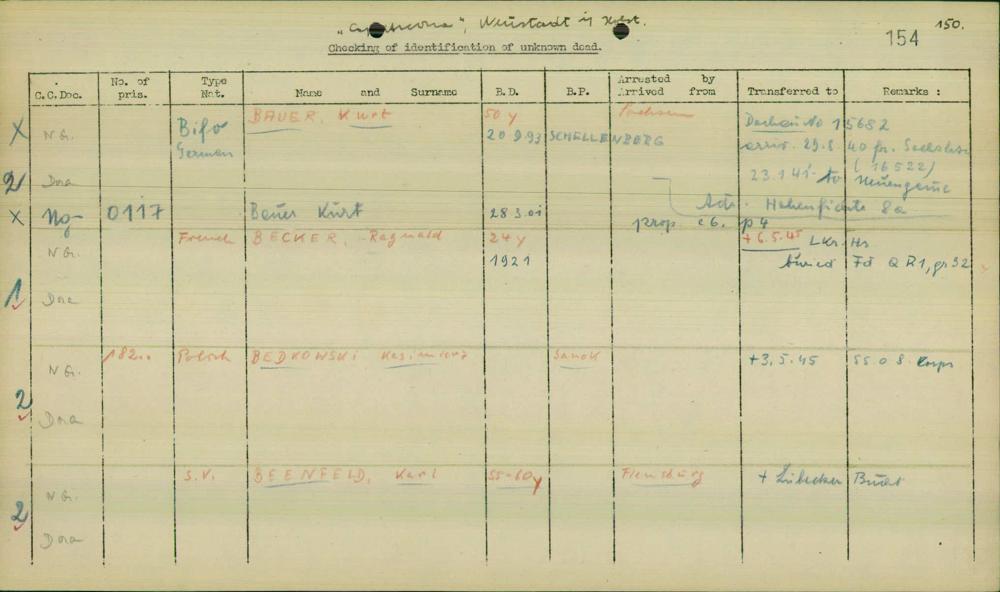 "Cap Arcona", Neustadt i/ Holst.
150.
154
Checking of identification of unknown dead.
C.C.Doc. No. of pris. Type Nat. Name and Surname B.D. B.P. Arrested by Arrived from Transferred to Remarks :
BAUER, Kurt 50 y Sachsen
X N G. Bifo 20 9.93 SCHELLENBERG Dachau No 15682
German arriv. 29.8.40 fr. Sachsh
(16522)
2 Dora 23.1.41 to Neuengame
Adr. Hohenfichte 8a
X Ng- 0117 Bauer Kurt 28 3.01 prop. c6. p4
French BECKER, Ragnald 24 y + 6.5.45 Lkr. Hs
N G. 1921 buried Fd Q R1, gr 32
1 Dora
182.. Polish BEDKOWSKI Kasimierz Sanok +3.5.45 SS.O S. Corps
N G.
2 Dora
S.V. BEENFELD, Karl 55-60y Flensburg + Lübecker Bucht
N G.
2 Dora